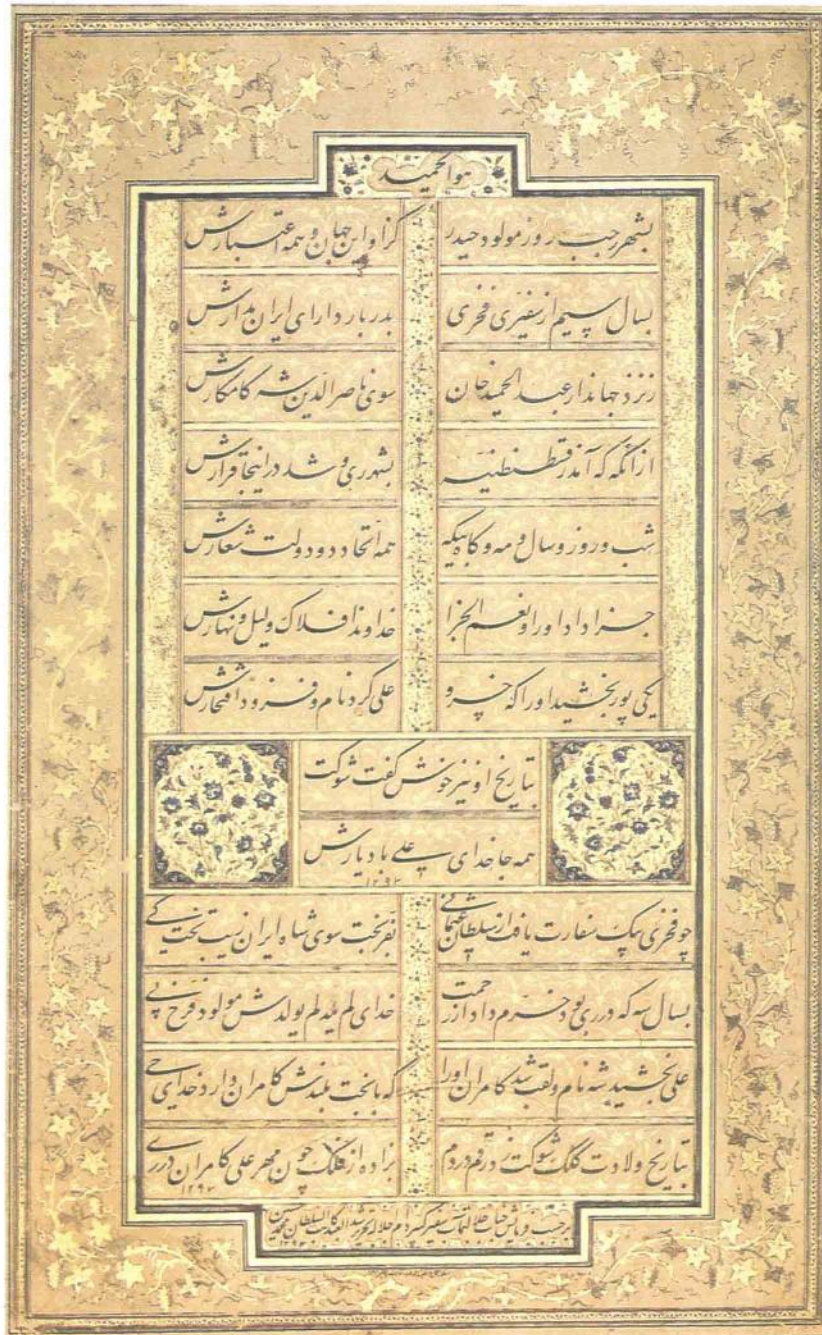 هوالحمید
بشهر رجب روز مولود حیدر کز او این جهان و همه اعتبارش
بسال سیم از سفیری فخری بدربار دارای ایران مدارش
ز نزد جهاندار عبدالحمید خان سوی ناصرالدین شه کامکارش
از انگه که آمد ز قسطنطنیه بشهر ری و شد در اینجا قرارش
شب و روز و سال و مه و گاه و بیگه همه اتحاد دو دولت شعارش
جزا داد او را و نعم الجزا خداوند افلاک و لیل و نهارش
یکی پور بخشید او را که خسرو علی کرد نام و فزود افتخارش
بتاریخ او نیز خوش گفت شوکت
همه جا خدای علی باد یارش
۱۲۹۳
چو فخری پیک سفارت یافت از سلطان عثمانی بفر بخت سوی شاه ایران تخت کی
بسال سه که در ری بود خرم داد از رحمت خدای لم یلد لم یولدش مولود فرخ پی
علی بخشید شه نام و لقب شد کامران او را که با بخت بلندش کامران دارد خدای حی
بتاریخ ولادت کلک شوکت زد رقم در دم بزاده از فلک چون مهر علی کامران در ری
۱۲۹۳
بر حسب فرمایش جناب سفیر کبیر دام اجلاله تحریر شد کاتب السلطان محمد حسین
۱۲۹۳